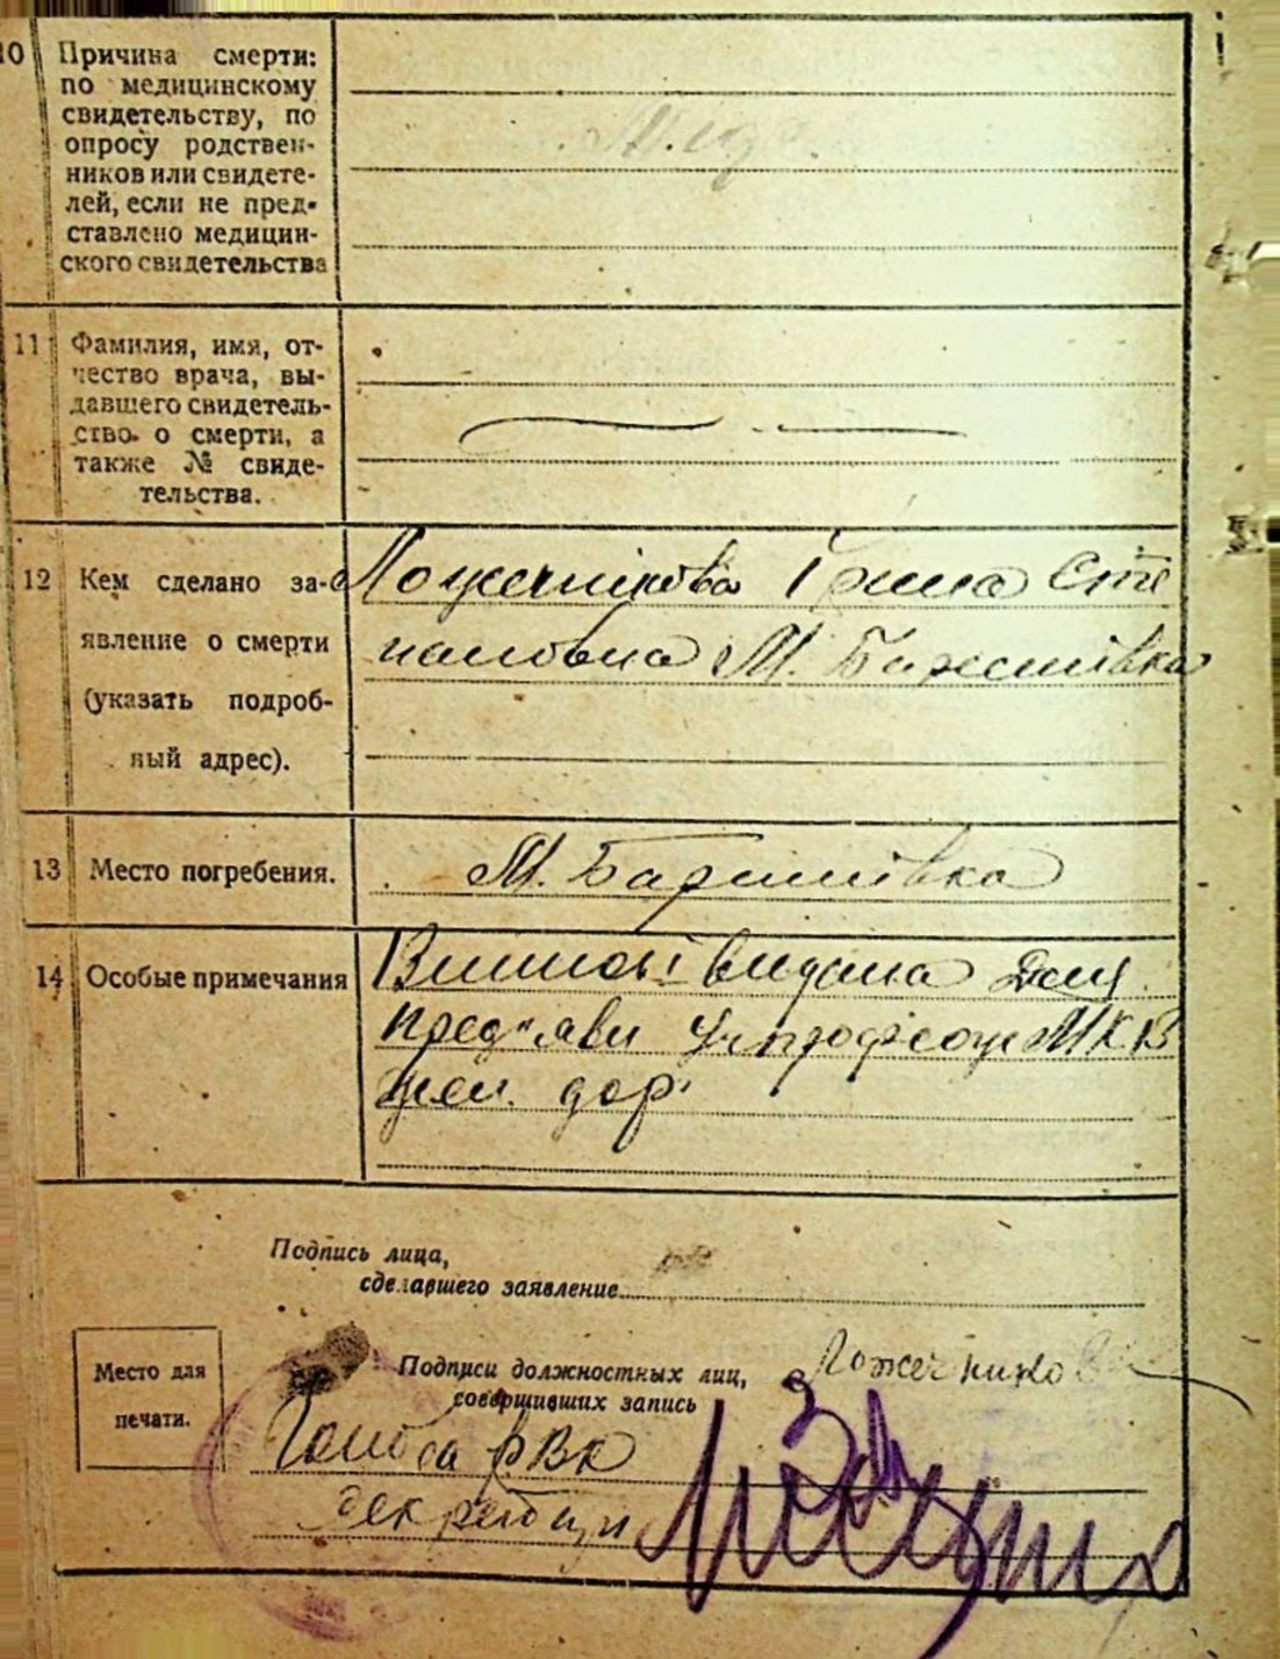 10 Причина смерти:
по медицинскому
свидетельству, по
опросу родствен-
ников или свидете-
лей, если не пред-
ставлено медицин-
ского свидетельства
11 Фамилия, имя, от-
чество врача, вы-
давшего свидетель-
ство о смерти, а
также № свиде-
тельства.
12 Кем сделано за-
явление о смерти
(указать подроб-
ный адрес).
Ложечнікова Ірина Сте
пановна М. Баришівка
13 Место погребения.
М. Баришівка
14 Особые примечания
видана для
МКВ
жел. дор.
Подпись лица,
сделавшего заявление
Место для
печати.
Подписи должностных лиц,
совершивших запись
Ложечникова
Голова РВК
Секретар